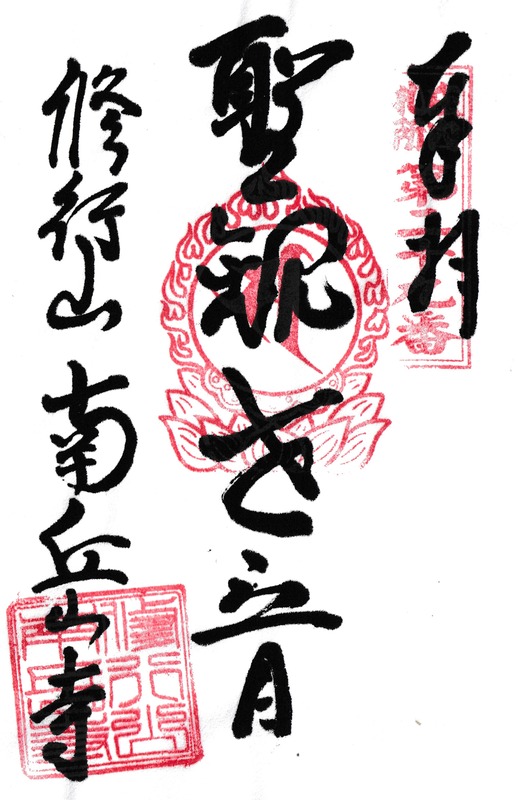 奉拝
聖観世音
修行山 南岳山寺